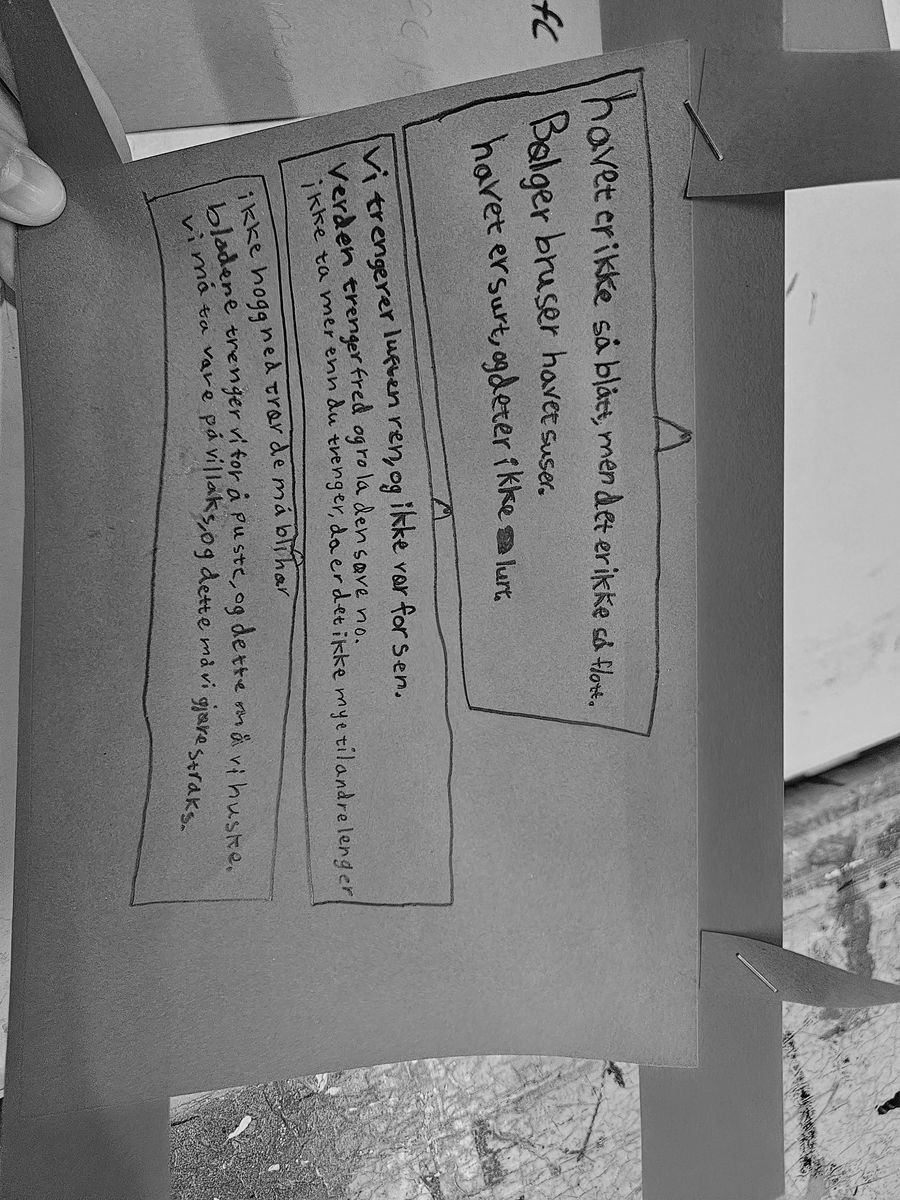 havet er ikke så blått, men det er ikke så flott.
Bølger bruser havet suser.
havet er surt, og det er ikke lurt.
Vi trengerer luften ren, og ikke vær for sen.
Verden trenger fred og ro la den sove no.
ikke ta mer enn du trenger, da er det ikke mye til andre lenger
ikke hogg ned trær de må bli hær
bladene trenger vi for å puste, og dette må vi huske.
vi må ta vare på villaks, og dette må vi gjøre straks.
fc